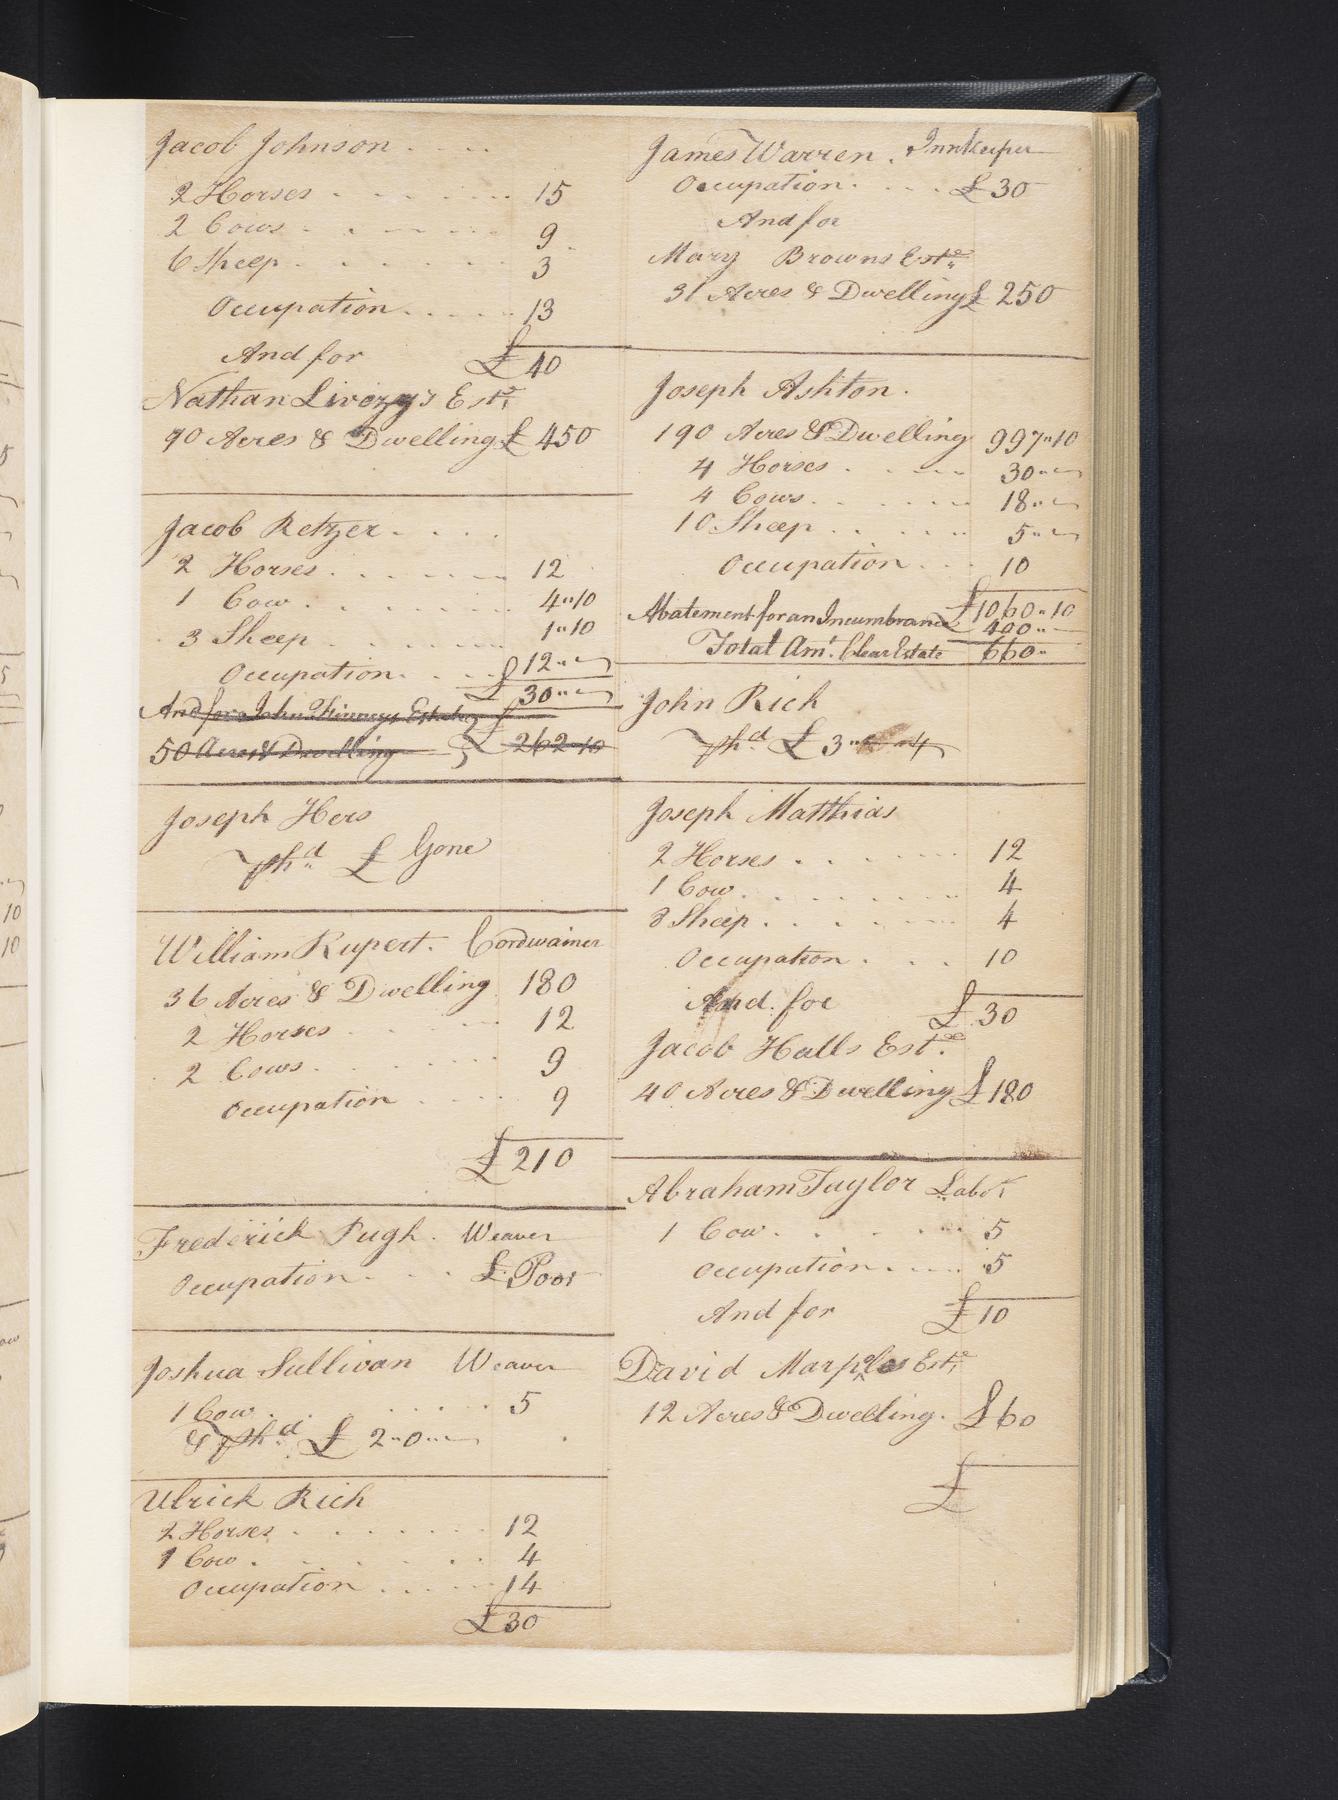 Jacob Johnson . . . .
2 Horses . . . . . . 15
2 Cows . . . . . . 9
6 Sheep . . . . . . 3
Occupation . . . . . 13
And for £ 40
Nathan Livezy's Este
90 Acres & Dwelling £ 450
Jacob Retzer . . . .
2 Horses . . . . . . 12
1 Cow . . . . . . 4"10
3 Sheep . . . . . . 1"10
Occupation . . . . 12"
£ 30"
And for John Kinneys Estate
50 Acres & Dwelling £ 262-10
Joseph Hers
Phd £ Gone
William Rupert. Cordwainer
36 Acres & Dwelling 180
2 Horses 12
2 Cows 9
Occupation 9
£ 210
Frederick Pugh. Weaver
Occupation . . . £ Poor
Joshua Sullivan Weaver
1 Cow . . . . . . 5
& Phd £ 2"0"
Ulrick Rich
2 Horses . . . . . . 12
1 Cow . . . . . . 4
Occupation . . . . . 14
£ 30
James Warren. Innkeeper
Occupation . . . . £ 30
And for
Mary Browns Este
31 Acres & Dwelling £ 250
Joseph Ashton.
190 Acres & Dwelling 997"10
4 Horses . . . . 30"
4 Cows . . . . 18"
10 Sheep . . . . . 5"
Occupation . . . 10
£ 1060"10
Abatement for an Incumbrance 400"
Total Amt. Clear Estate 660"
John Rich
Phd £ 3
Joseph Matthias
2 Horses . . . . . . 12
1 Cow . . . . . . 4
8 Sheep . . . . . . 4
Occupation . . . . 10
And for £ 30
Jacob Halls Este
40 Acres & Dwelling £ 180
Abraham Taylor Labor
1 Cow . . . . . 5
Occupation . . . . 5
And for £ 10
David Marples Este
12 Acres & Dwelling. £ 60
£